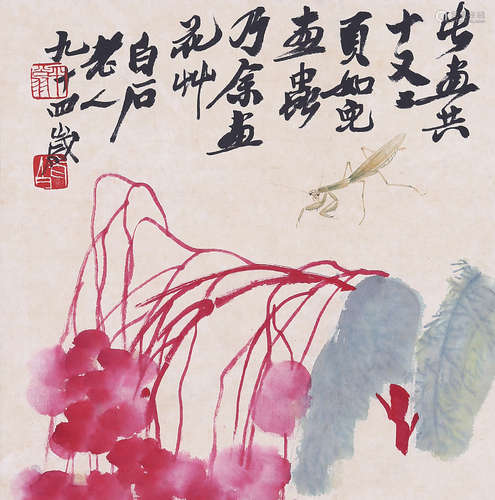 此画共
十又二
页如儿
画虫
乃余画
花艸
白石
老人
九十四岁